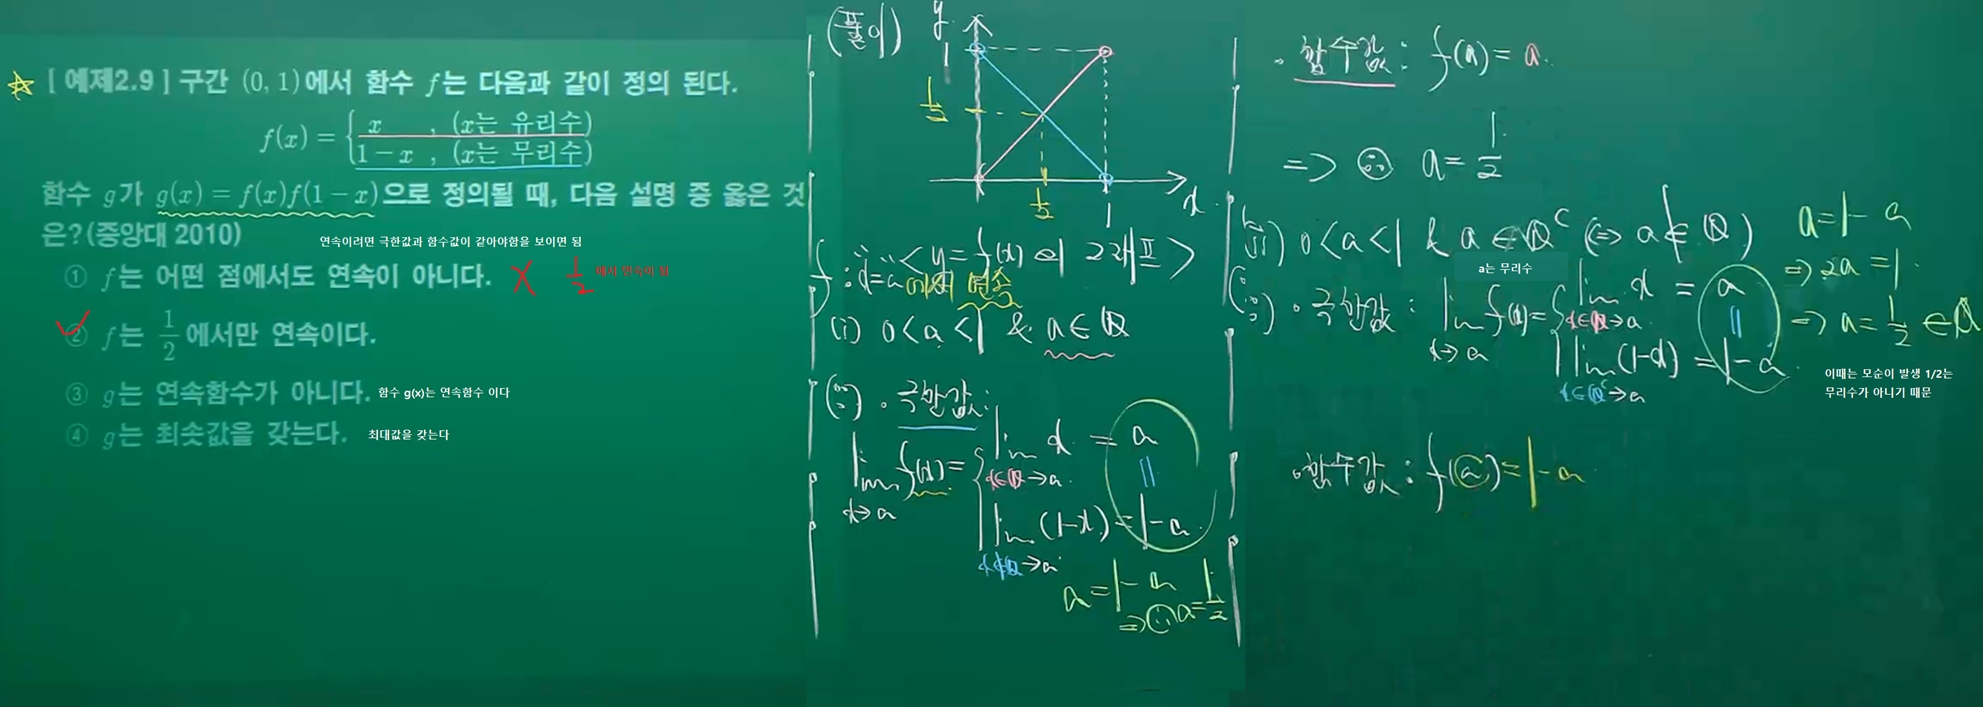 [ 예제2.9 ] 구간 (0, 1)에서 함수 f는 다음과 같이 정의 된다.
f(x) = { x , (x는 유리수)
1-x , (x는 무리수)
함수 g가 g(x) = f(x)f(1-x)으로 정의될 때, 다음 설명 중 옳은 것
은?(중앙대 2010)
연속이려면 극한값과 함수값이 같아야함을 보이면 됨
① f는 어떤 점에서도 연속이 아니다. X 1/2 에서 연속이 됨
② f는 1/2 에서만 연속이다.
③ g는 연속함수가 아니다. 함수 g(x)는 연속함수 이다
④ g는 최솟값을 갖는다. 최대값을 갖는다
(풀이)
y
1
1/2
1/2
1
x
<y = f(x)의 그래프>
f : x=a에서 연속
(i) 0<a<1 & a∈Q
(∵) • 극한값:
lim f(x) = { lim x = a
x→a x∈Q→a
lim (1-x) = 1-a
x∉Q→a
a = 1-a
=> ∴ a = 1/2
• 함수값 : f(a) = a
=> ∴ a = 1/2
(ii) 0<a<1 & a∈Q^C (<=> a∉Q)
a는 무리수
(∵) • 극한값 : lim f(x) = { lim x = a
x→a x∈Q→a
lim (1-x) = 1-a
x∈Q^C→a
a = 1-a
=> 2a = 1
=> a = 1/2 ∈ Q
이때는 모순이 발생 1/2는
무리수가 아니기 때문
• 함수값 : f(a) = 1-a